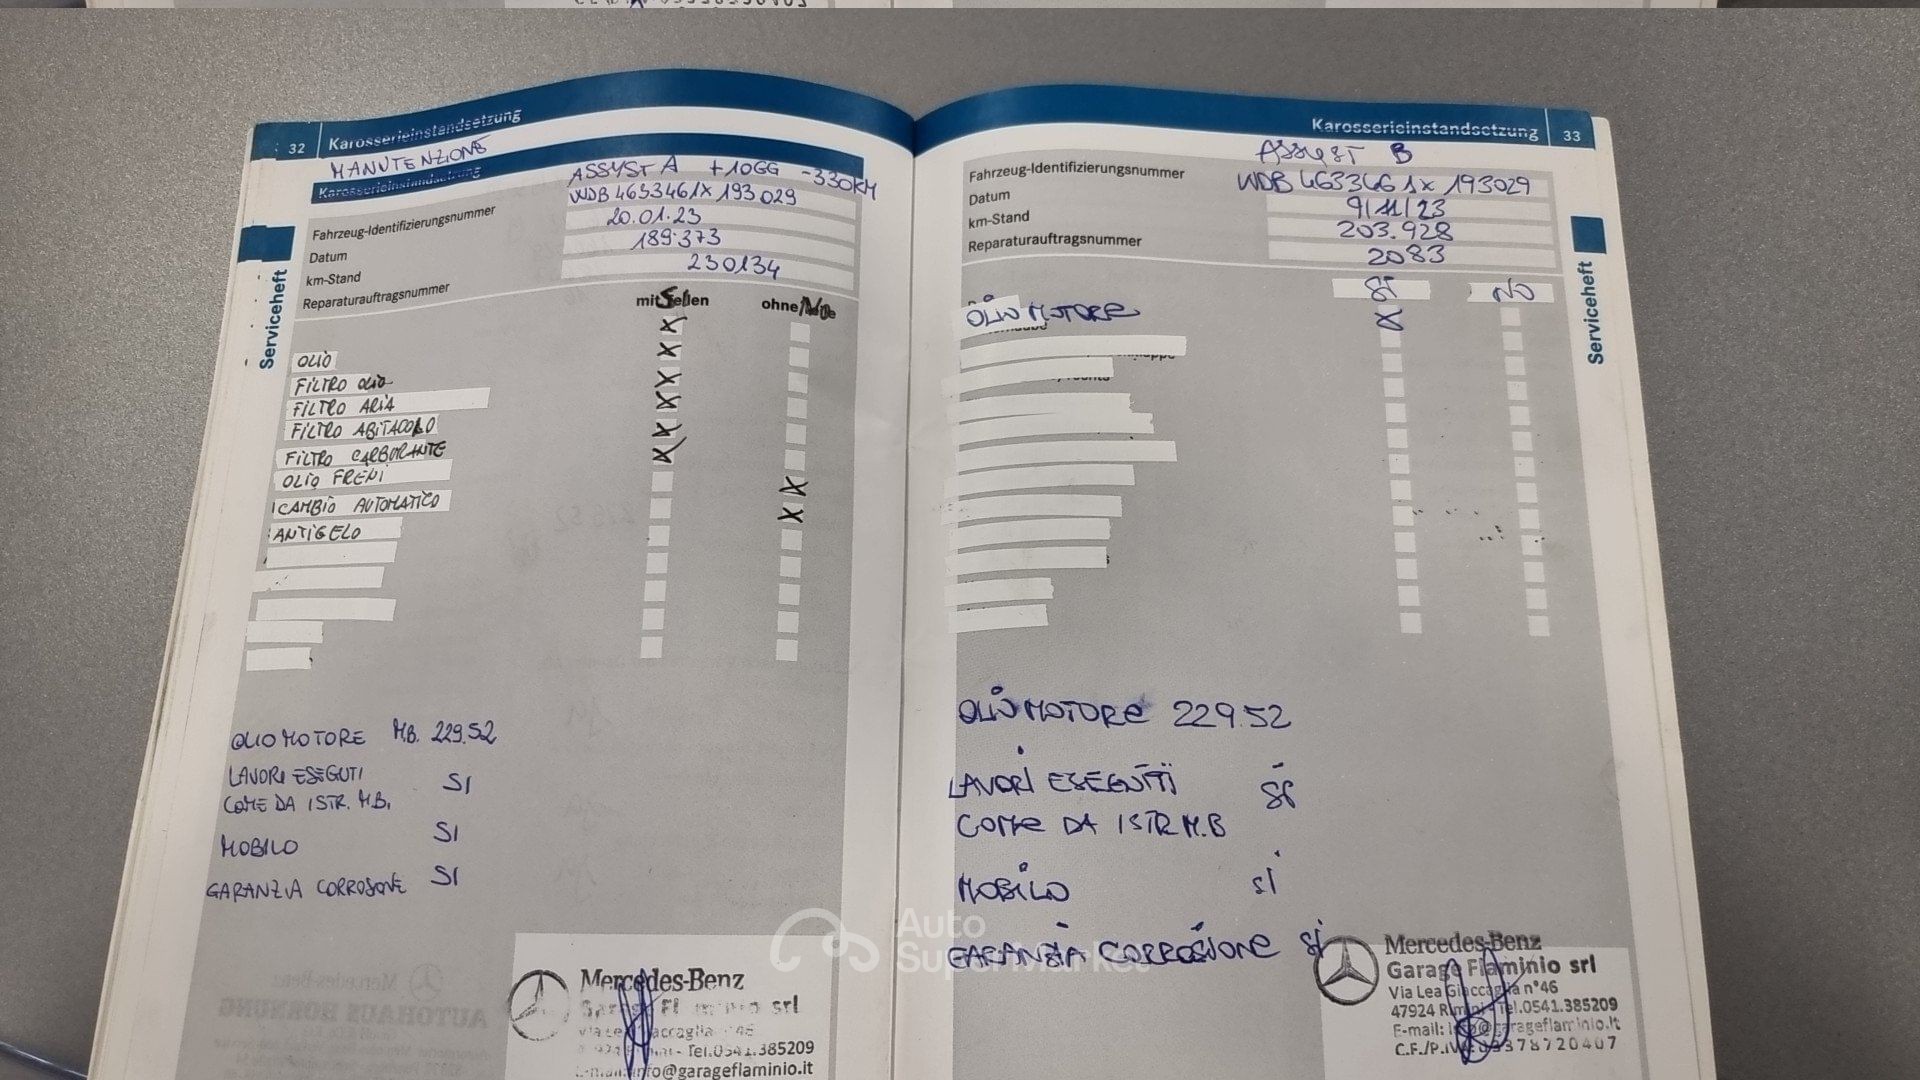 32 Karosserieinstandsetzung
MANUTENZIONE
Karosserieinstandsetzung
ASSYST A +10GG -330KM
Fahrzeug-Identifizierungsnummer WDB4633461X193029
Datum 20.01.23
km-Stand 189.373
Reparaturauftragsnummer 230134
Serviceheft
OLIO
FILTRO OLIO
FILTRO ARIA
FILTRO ABITACOLO
FILTRO CARBURANTE
OLIO FRENI
CAMBIO AUTOMATICO
ANTIGELO
OLIO MOTORE M.B. 229.52
LAVORI ESEGUTI SI
COME DA ISTR. M.B.
MOBILO SI
GARANZIA CORROSONE SI
Mercedes-Benz
srl
Tel.0541.385209
info@garageflaminio.it
Karosserieinstandsetzung 33
ASSYST B
Fahrzeug-Identifizierungsnummer WDB4633461X193029
Datum 9/11/23
km-Stand 203.928
Reparaturauftragsnummer 2083
SI NO
OLIO MOTORE X
Serviceheft
OLIO MOTORE 229.52
LAVORI ESEGUITI SI
COME DA ISTR M.B
MOBILO SI
GARANZIA CORROSIONE SI
Mercedes-Benz
Garage Flaminio srl
Via Lea Giaccaglia n°46
47924 Rimini - Tel.0541.385209
E-mail: info@garageflaminio.it
Auto
SuperMarket